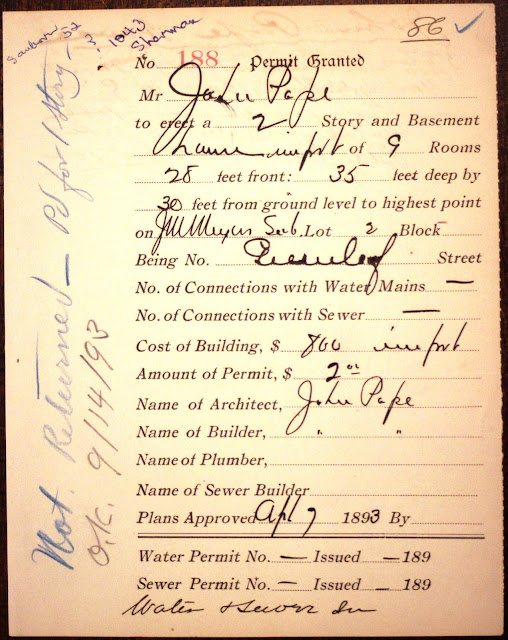 86 ✓
Sanborn - 52
? 1043
Sherman
No 188 Permit Granted
Mr John Pape
to erect a 2 Story and Basement
of 9 Rooms
28 feet front: 35 feet deep by
30 feet from ground level to highest point
on J M Meyers Sub. Lot 2 Block
Being No. Greenleaf Street
No. of Connections with Water Mains —
No. of Connections with Sewer —
Cost of Building, $ 800
Amount of Permit, $ 2 00
Name of Architect, John Pape
Name of Builder, " "
Name of Plumber,
Name of Sewer Builder
Plans Approved Apl 7 1893 By
Water Permit No. — Issued — 189
Sewer Permit No. — Issued — 189
Water & Sewer in
Not Returned — Pd for 1 Story —
O.K. 9/14/93